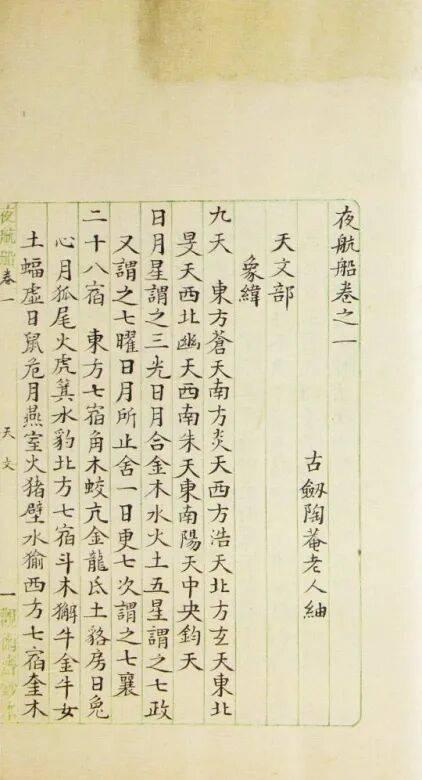 夜航船卷之一
古劔陶菴老人紬
天文部
象緯
九天　東方蒼天南方炎天西方浩天北方玄天東北
旻天西北幽天西南朱天東南陽天中央鈞天
日月星謂之三光日月合金木水火土五星謂之七政
又謂之七曜日月所止舍一日更七次謂之七襄
二十八宿　東方七宿角木蛟亢金龍氐土貉房日兔
心月狐尾火虎箕水豹北方七宿斗木獬牛金牛女
土蝠虛日鼠危月燕室火猪壁水㺄西方七宿奎木
夜航船
卷一
天文
一